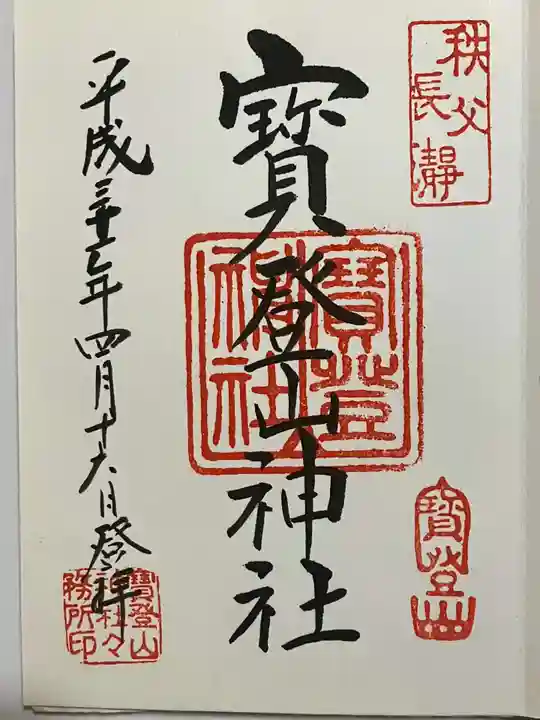 秩父
長瀞
寳登山
寳登山神社
寳登山
神社
平成三十一年四月十六日登拝
寳登山
神社々
務所印